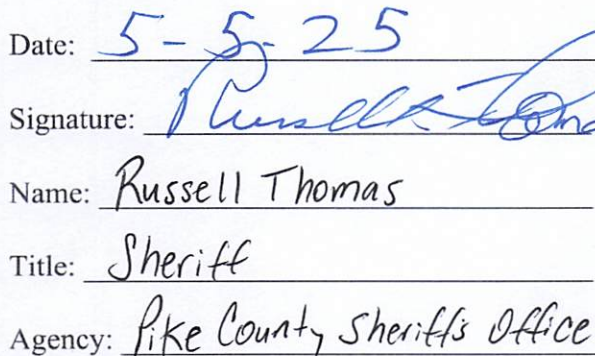 Date: 5-5-25
Signature: Russell Thoma
Name: Russell Thomas
Title: Sheriff
Agency: Pike County Sheriff's Office